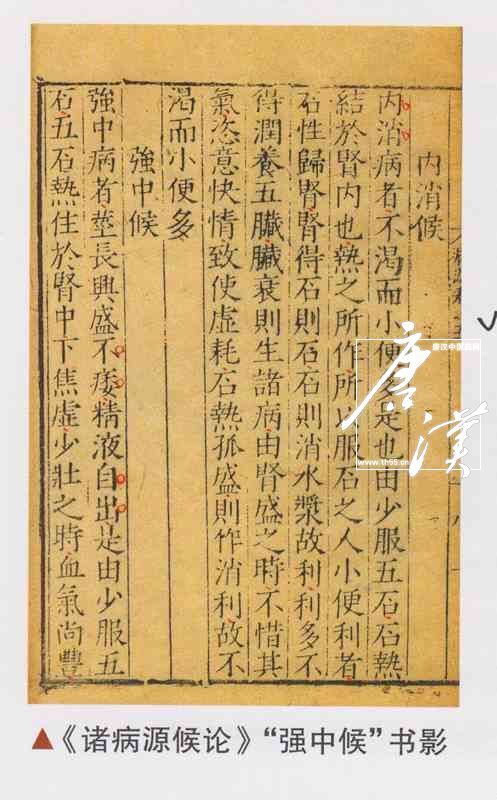 内消候
内消病者不渴而小便多是也由少服五石石熱
結於腎内也熱之所作所以服石之人小便利者
石性歸腎腎得石則石石則消水漿故利利多不
得潤養五臟臟衰則生諸病由腎盛之時不惜其
氣恣意快情致使虛耗石熱孤盛則作消利故不
渴而小便多
強中候
強中病者莖長興盛不痿精液自出是由少服五
石五石熱住於腎中下焦虛少壯之時血氣尚豐
唐汉中医药网
唐漢
www.th55.cn
▲《诸病源候论》“强中候”书影